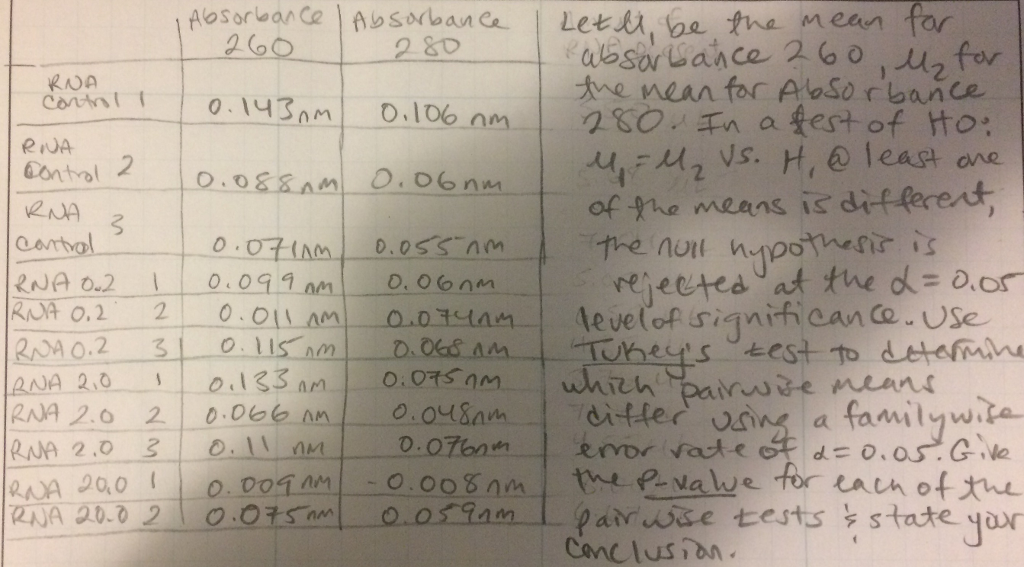 Absorbance 260 Absorbance 280
RNA Control 1 0.143nm 0.106 nm
RNA Control 2 0.088nm 0.06nm
RNA Control 3 0.071nm 0.055nm
RNA 0.2 1 0.099 nm 0.06nm
RNA 0.2 2 0.011 nm 0.074nm
RNA 0.2 3 0.115nm 0.068nm
RNA 2.0 1 0.133nm 0.075nm
RNA 2.0 2 0.066 nm 0.048nm
RNA 2.0 3 0.11 nm 0.076nm
RNA 20.0 1 0.009nm -0.008nm
RNA 20.0 2 0.075nm 0.059nm
Let μ, be the mean for
absorbance 260, μ2 for
the mean for Absorbance
280. In a test of H0:
μ1=μ2 vs. H, @ least one
of the means is different,
the null hypothesis is
rejected at the α=0.05
level of significance. Use
Tukey's test to determine
which pairwise means
differ using a familywise
error rate of α=0.05. Give
the P-value for each of the
pairwise tests & state your
conclusion.